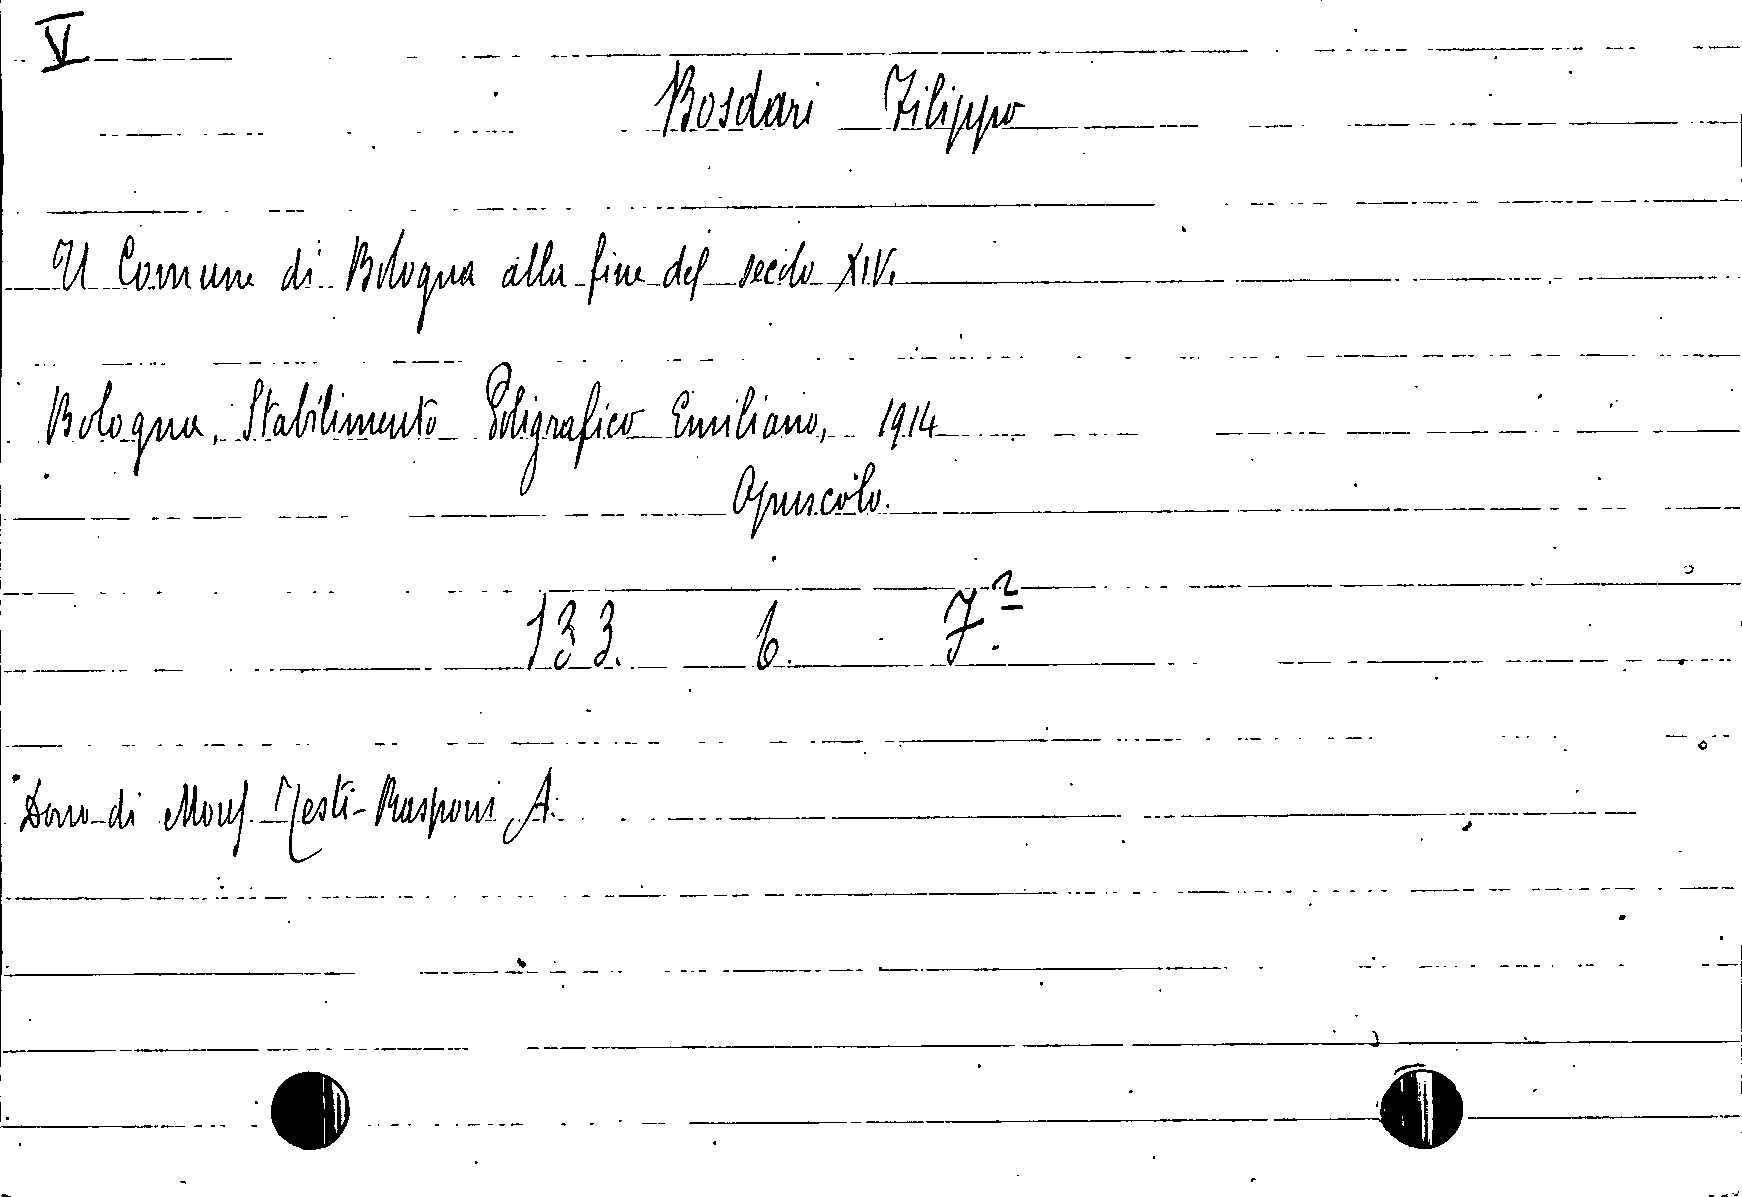 V
Bosdari Filippo
Il Comune di Bologna alla fine del secolo XIV.
Bologna, Stabilimento Poligrafico Emiliano, 1914
Opuscolo.
133. 6. 7.²
Dono di Mons. Testi-Rasponi A.